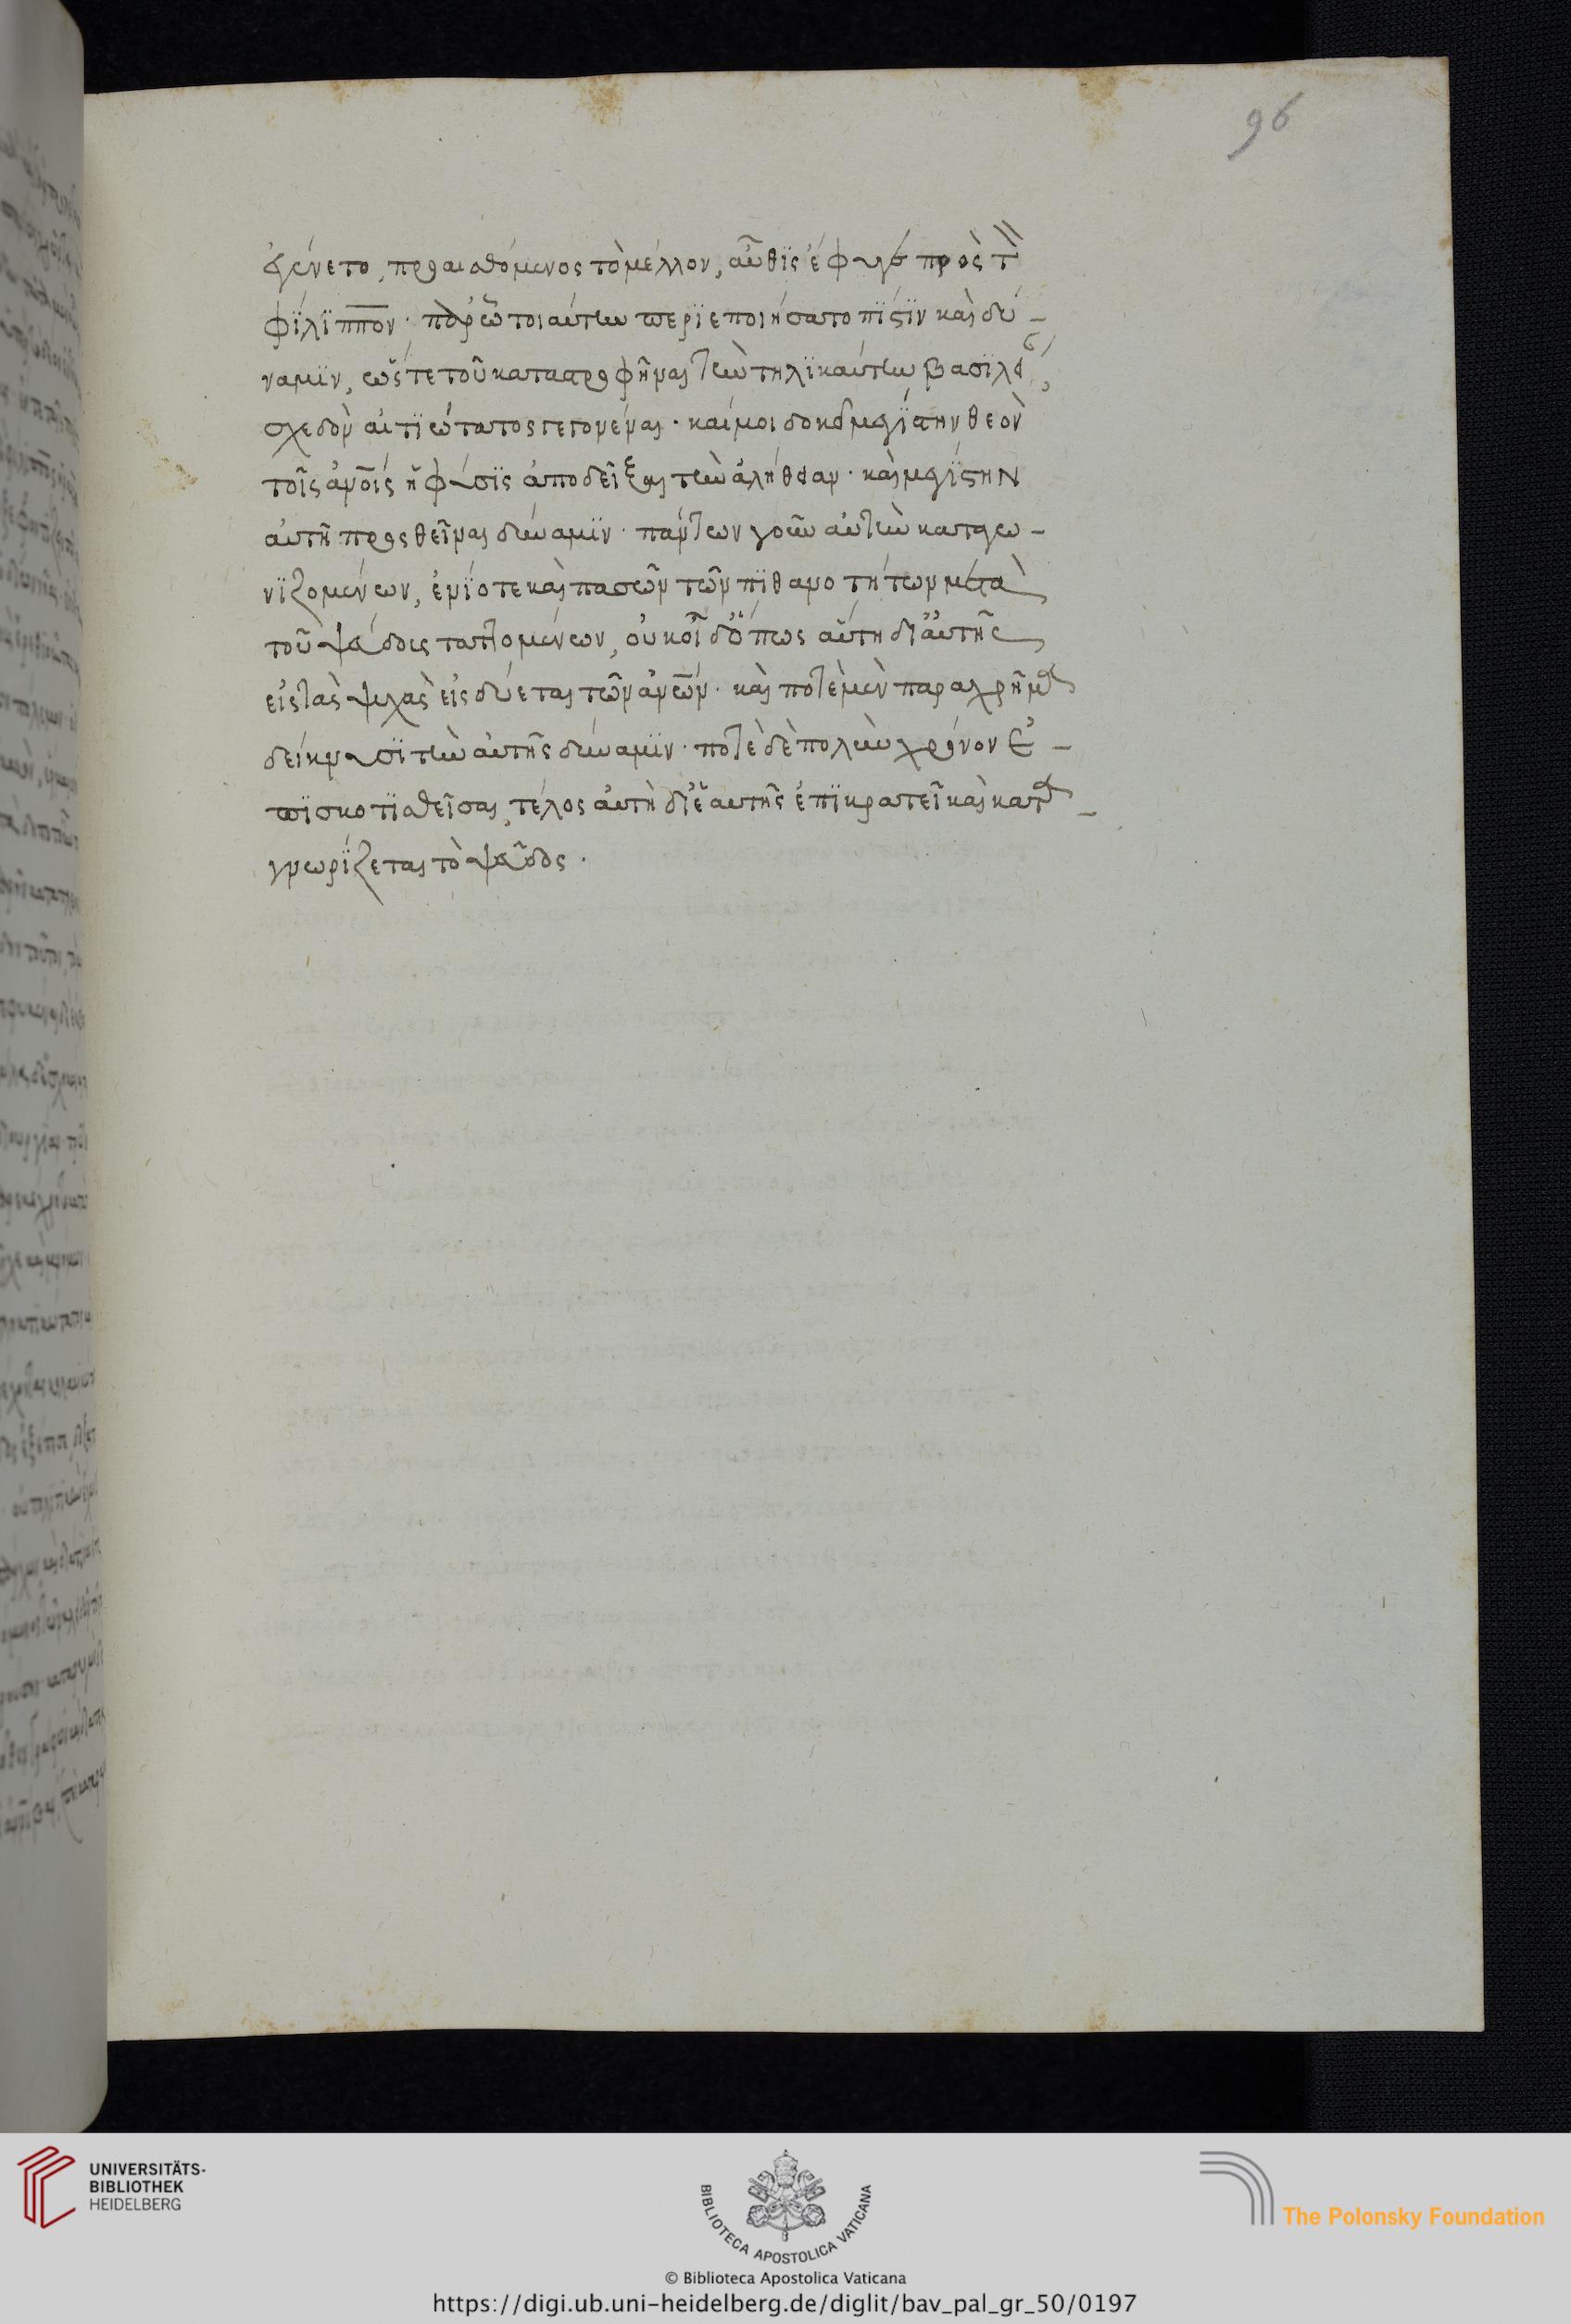 96
ἐγένετο, προαισθόμενος τὸ μέλλον, αὖθϊς ἔφυγε πρὸς τὸν
φίλϊππον · παρ' ὧ τοιαύτην περϊεποιήσατο πίστϊν καὶ δύ-
ναμϊν, ὥστε τοῦ καταστροφῆναι τὴν τηλϊκαύτην βασϊλεί,
σχεδὸν αἰτϊώτατος γεγονέναι · καί μοι δοκεῖ μεγίστην θεὸν
τοῖς ἀνοῖς ἡ φύσϊς ἀποδεῖξαι τὴν ἀλήθειαν · καὶ μεγίστην
αὐτῆ προσθεῖναι δύναμϊν · πάντων γοῦν αὐτὴν καταγω-
νϊζομένων, ἐνϊότε καὶ πασῶν τῶν πϊθανοτήτων μετὰ
τοῦ ψεύδους ταττομένων, οὐκ οἶδ' ὅπως αὕτη δι' αὑτῆς
εἰς τὰς ψυχὰς εἰσδύεται τῶν ἀνῶν · καὶ ποτὲ μὲν παραχρῆμα
δείκνυσϊ τὴν αὑτῆς δύναμϊν · ποτὲ δὲ πολὺν χρόνον ἐ-
πϊσκοτϊσθεῖσα, τέλος αὐτὴ δι' ἑαυτῆς ἐπϊκρατεῖ καὶ κατα-
γνωρίζεται τὸ ψεῦδος ·
UNIVERSITÄTS-
BIBLIOTHEK
HEIDELBERG
BIBLIOTECA APOSTOLICA VATICANA
The Polonsky Foundation
© Biblioteca Apostolica Vaticana
https://digi.ub.uni-heidelberg.de/diglit/bav_pal_gr_50/0197